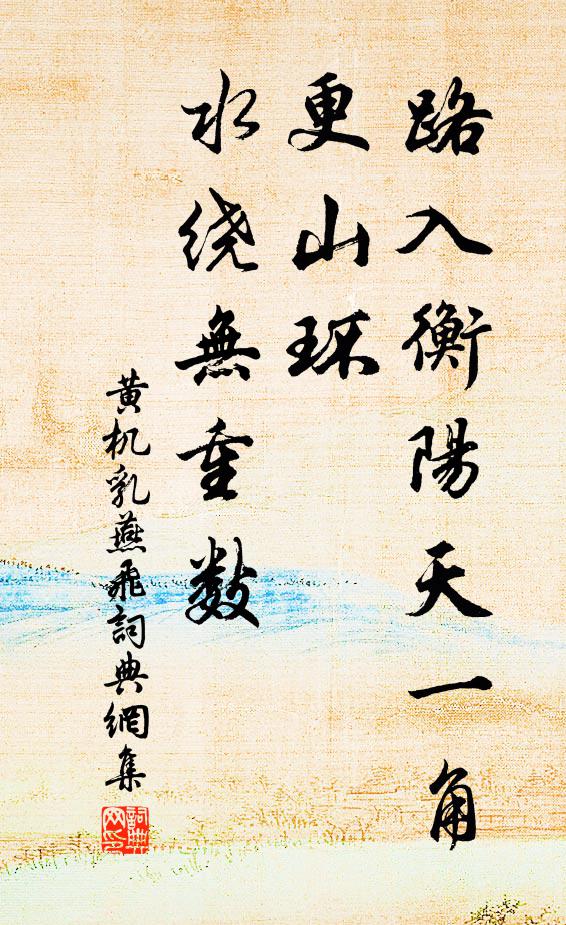 路入衡陽天一角
更山环
水绕無重数
黄机乳燕飛詞典網集
詞典
网印